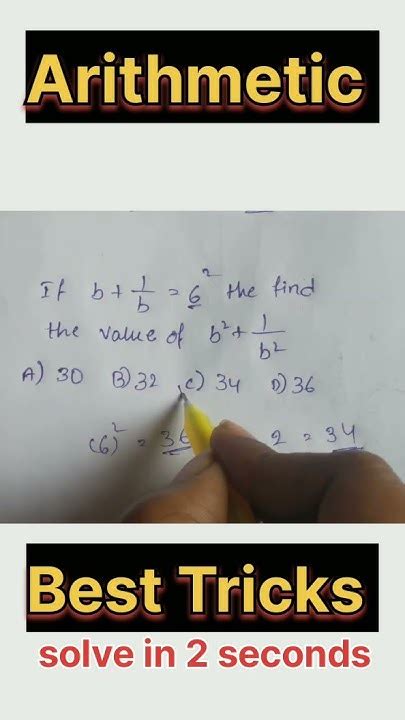 Arithmetic
If b + 1/b = 6² the find
the value of b² + 1/b²
A) 30 B) 32 C) 34 D) 36
(6)² = 36 2 = 34
Best Tricks
solve in 2 seconds